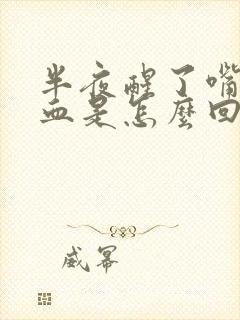 半夜醒了嘴
血是怎麼回
威幂